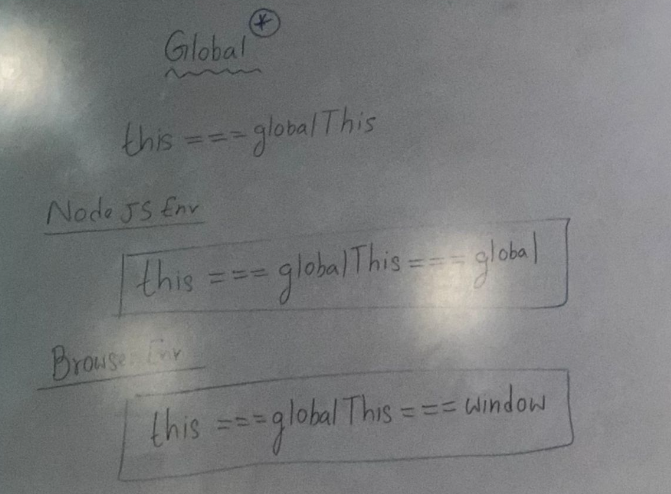 Global *
this === globalThis
Node JS Env
this === globalThis === global
Browser Env
this === globalThis === window